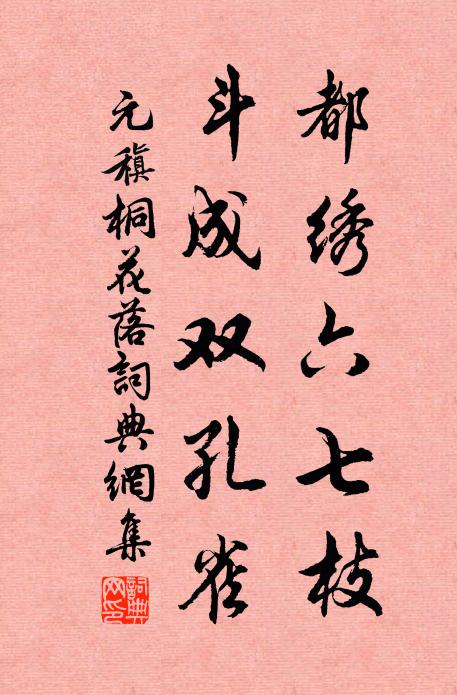 都绣六七枝
斗成双孔雀
元稹桐花落詞典網集
詞典網印